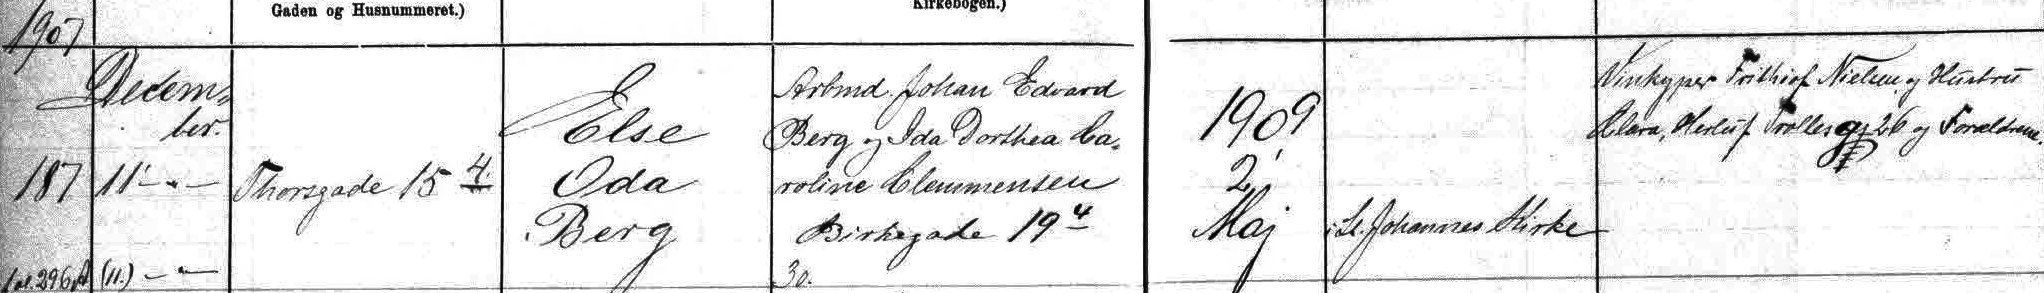 Gaden og Husnummeret.)
Kirkebogen.)
1907
Decem-
ber.
187
11' — " —
Thorsgade 15 4
Else
Oda
Berg
Arbmd. Johan Edvard
Berg og Ida Dorthea Ca-
roline Clemmensen
Birkegade 19 4
30.
1909
2'
Maj
i St. Johannes Kirke
Vinkyper Frithiof Nielsen og Hustru
Clara, Herluf Trollesg 26 og Forældrene.
296
(11.) — " —